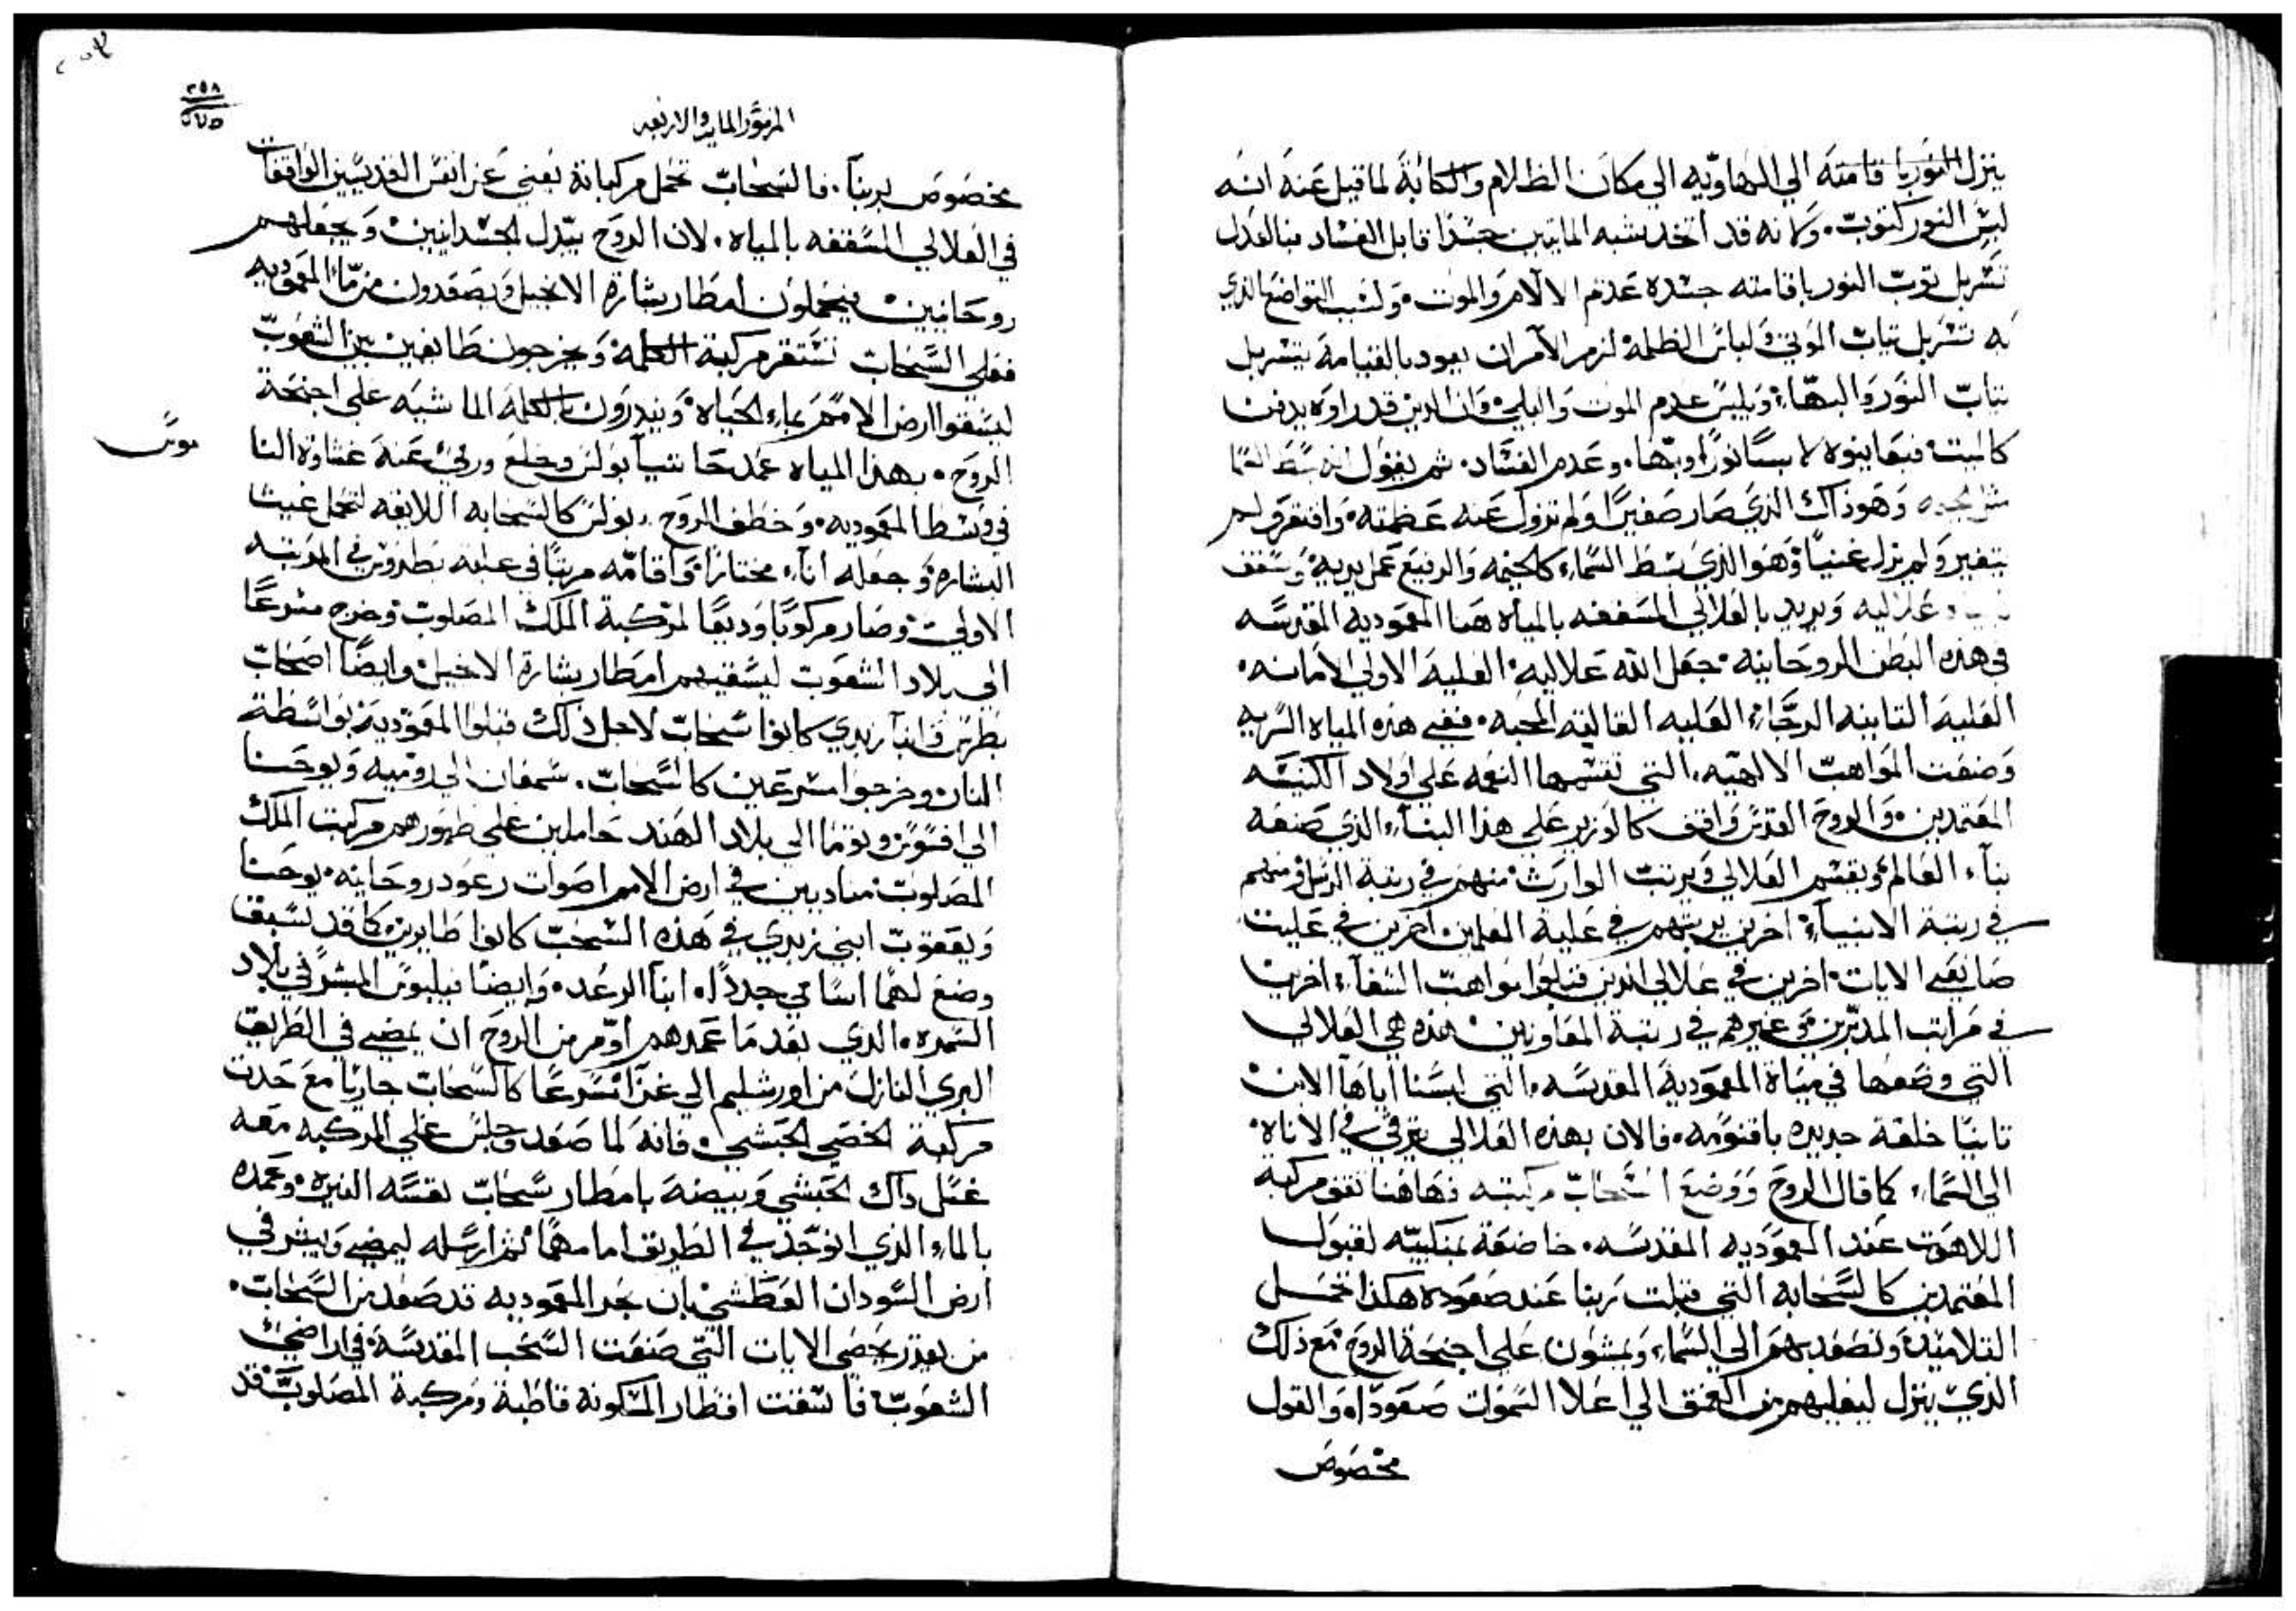 ينزل النور باقامته الي الهاويه الي مكان الظلام والكابة لما قيل عنه انه
لبس النور كتوب. ولانه قد اتخد بشبه المايتين جسدا قابل الفساد فبالعدل
تسربل توب النور باقامته جسده عدم الالام والموت. ولسبب التواضع الذي
به تسربل تياب الموتي ولباس الظلمة لزم الامر ان يعود بالقيامة يتسربل
بتياب النور والبهاء. ويلبس عدم الموت والبلي. وان الدين قد راوه يدفن
كالميت فيعاينوه لابسا نورا وبها. وعدم الفساد. ثم يقول انه بسط السما
مثل وهو ذاك الذي صار صغيرا ولم تزول عنه عظمته. وافتقر ولم
يتغير ولم يزل غنيا. وهو الذي بسط السماء كالخيمه والرقيع عمل يديه وسقف
علاليه ويريد بالعلالي المسقفه بالمياه هنا المعموديه المقدسه
في هذه البطن الروحانيه. جعل الله علاليه. العليه الاولي الامانه.
العلية التانيه الرجاء. العليه التالته المحبه. ففي هذه المياه السريه
وضعت المواهب الالهيه. التي تقسمها النعمه علي اولاد الكنيسه
المعتمدين. والروح القدس واقف كالوزير علي هذا البناء. الذي صنعه
بناء العالم. ويقسم العلالي ويرتب الوارث. منهم في رتبة الرسل ومنهم
في رتبة الانبياء. اخرين يرتبهم في علية المعلمين. اخرين في عليت
صانعي الايات. اخرين في علالي الدين قبلوا مواهب الشفاء. اخرين
في مراتب المدبرين. وغيرهم في رتبة المعاونين. هذه هي العلالي
التي وضعها في مياه المعمودية المقدسه. التي لبسنا اياها الابن
تانيا خلقة جديده باقنومه. فالان بهذه العلالي يترقي في الاناة.
الي السماء. كما قال الروح ووضع السحاب مركبته فهاهنا تقف مركبة
اللاهوت عند المعموديه المقدسه. خاضعة بمنكبيه لقبول
المعتمدين كالسحابه التي قبلت ربنا عند صعوده هكذا تحمل
التلاميد وتصعد بهم الي السماء. ويمشون علي اجنحة الروح. مع ذلك
الذي ينزل ليعليهم من العمق الي اعلا السموات صعودا. والقول
مخصوص
المزمور المايه والاربعه
٢٥٨
مخصوص بربنا. فالسحاب تحمل مركباته يعني عن انفس القديسين الواقفات
في العلالي المسقفه بالمياه. لان الروح يبدل الجسدانيين ويجعلهم
روحانيين فيحملون امطار بشارة الانجيل ويصعدون من ماء المعموديه
فعلي السحاب تستقر مركبة الكلمه. ويخرجون طايفين بين الشعوب
ليسقوا ارض الامم بماء الحياه. وينذرون بالكلمة الماشيه علي اجنحة
الروح. بهذا المياه عمد حنانيا بولس وخلع ورمي عنه غشاوة النا
موس
في وسط المعموديه. وخطف الروح بولس كالسحابه اللايقه لتحمل غيث
البشاره. وجعله اناء مختارا. واقامه مرتبا في عليه بطرس في المرتبه
الاولي. وصار مركوبا وديعا لمركبة الملك المصلوب وخرج مسرعا
الي بلاد الشعوب ليسقيهم امطار بشارة الانجيل. وايضا اصحاب
بطرس وابنا زبدي كانوا سحاب لاجل ذلك قبلوا المعموديه بواسطة
النار. وخرجوا مسرعين كالسحاب. سمعان الي روميه ويوحنا
الي افسوس وتوما الي بلاد الهند حاملين علي ظهورهم مركبت الملك
المصلوب. مناديين في ارض الامم اصوات رعود روحانيه. يوحنا
ويعقوب ابني زبدي في هذه السحب كانوا طايرين كما قد سبق
وضع لهما اسامي جددا. ابنا الرعد. وايضا فيلبوس المبشر في بلاد
السمره. الذي بعد ما عمدهم اومر من الروح ان يمضي في الطريق
البري النازل من اورشليم الي غزا. اسرعا كالسحاب جاريا مع حدت
مركبة الخصي الحبشي. فانه لما صعد وجلس علي المركبه معه
غسل داك الحبشي وبيضه بامطار سحاب نفسه النيره. وعمده
بالماء الذي انوجد في الطريق امامهما. ثم ارسله ليمضي ويبشر في
ارض السودان العطشي بان بحر المعموديه قد صعد من السحاب.
من يقدر يحصي الايات التي صنعت السحب المقدسة في اراضي
الشعوب فاتسقت اقطار المسكونه قاطبة ومركبة المصلوب قد